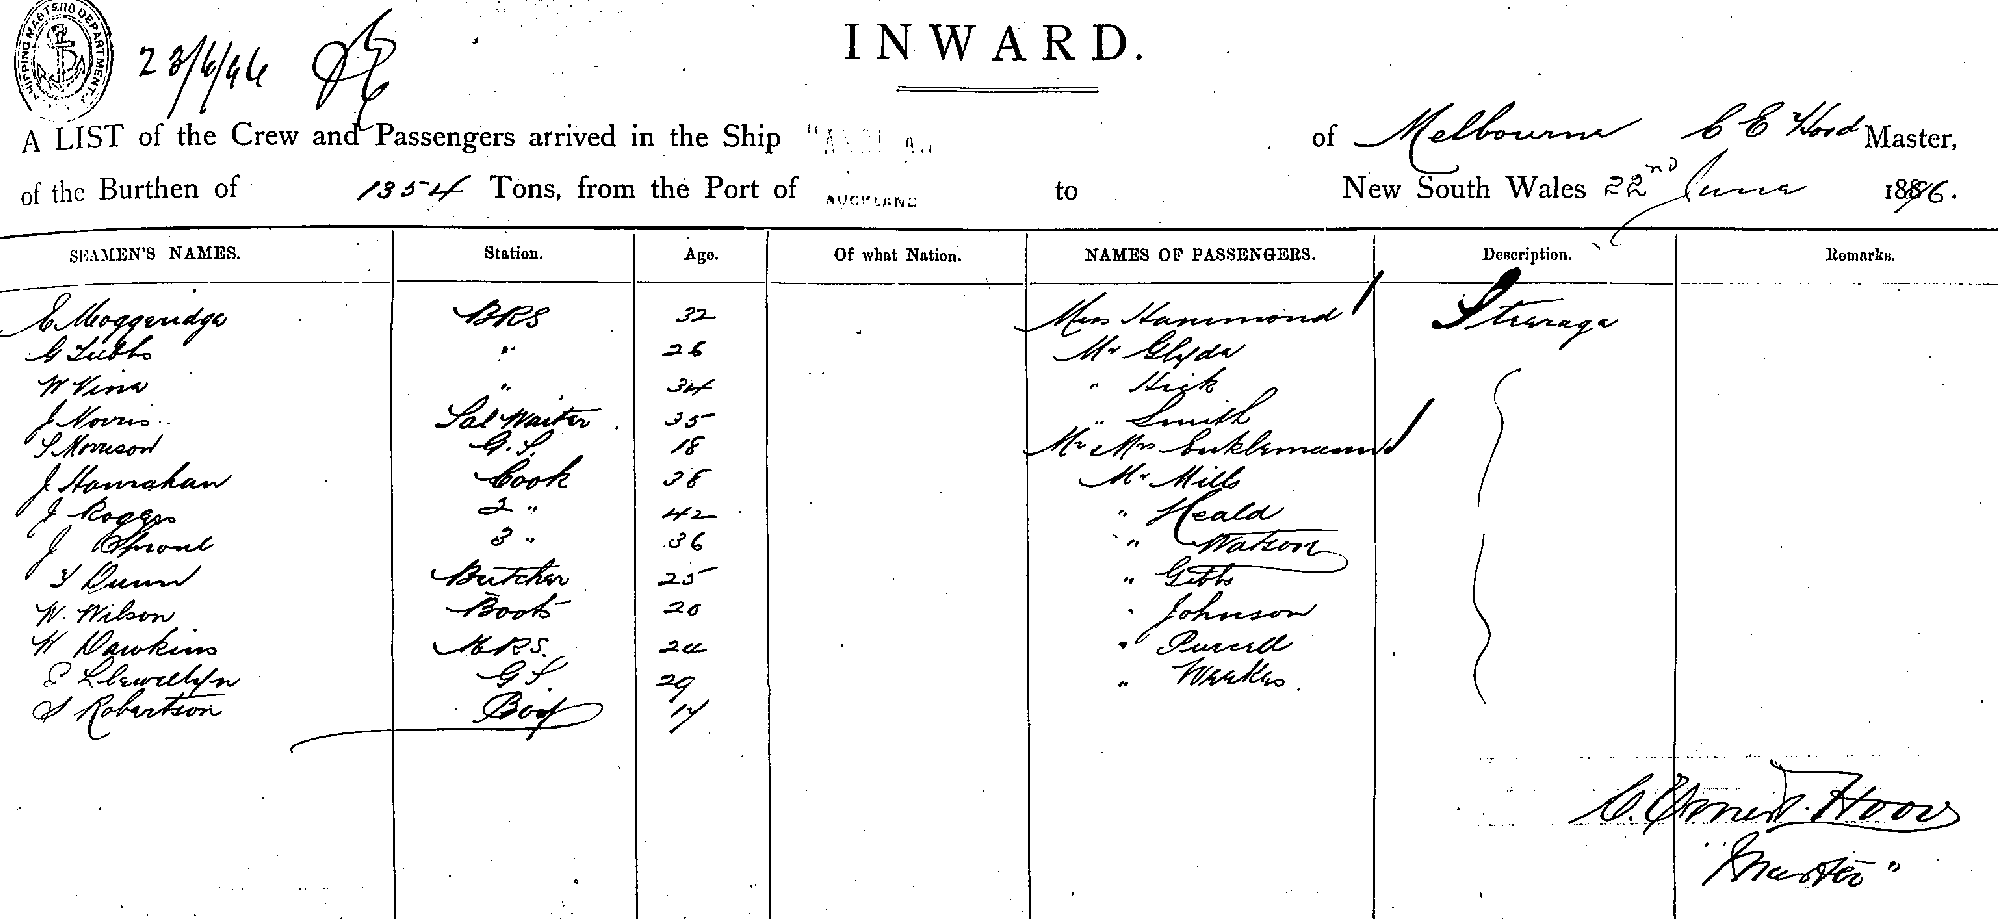 SHIPPING MASTERS DEPARTMENT
23/6/96
INWARD.
A LIST of the Crew and Passengers arrived in the Ship " of Melbourne C E Hood Master,
of the Burthen of 1354 Tons, from the Port of AUCKLAND to New South Wales 22nd June 1896.
SEAMEN'S NAMES. Station. Age. Of what Nation. NAMES OF PASSENGERS. Description. Remarks.
E Moggeridge BRS 32 Hammond Steerage
G Tubbs " 26 Mr Glyde
W Vine " 34 " Hick
J Norris Sal Waiter 35 " Smith
S Morrison G.S. 18 Mr Mrs
J Hanrahan Cook 38 Mr Mills
J Rogers 2 " 42 " Heald
J Sproul 3 " 36 " Watson
T Dunn Butcher 25 " Gibbs
W. Wilson Boots 20 " Johnson
W Dawkins MRS. 24 " Purcell
E Llewellyn G S 29 " Weekes
S Robertson Boy 17
C. Ernest Hood
"Master"